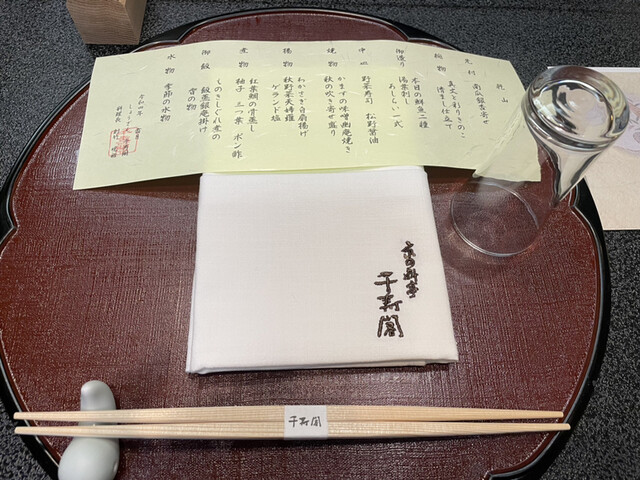 先付 南瓜銀杏寄せ
椀物 真丈と彩りきのこ
清まし仕立て
御造り 本日の鮮魚二種
湯葉刺し
あしらい一式
野菜寿司 松野醤油
焼物 かますの味噌幽庵焼き
秋の吹き寄せ盛り
揚物 わかさぎ白扇揚げ
秋野菜天婦羅
ゲランド塩
煮物 紅葉鯛の骨蒸し
柚子 三つ葉 ポン酢
御飯 しのきしぐれ煮の
飯蒸銀庵掛け
香の物
水物 季節の水物
料理長
京の料亭
千寿閣
千寿閣